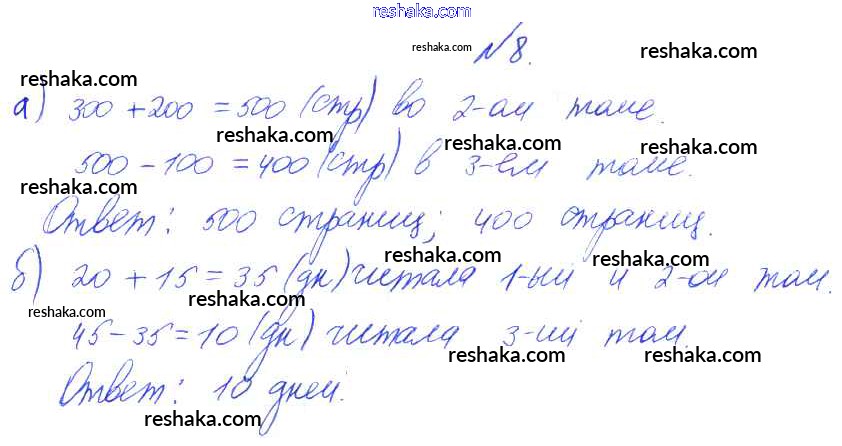 reshaka.com
reshaka.com
№8.
reshaka.com
reshaka.com
а) 300 + 200 = 500 (стр) во 2-ом томе.
reshaka.com
reshaka.com
500 - 100 = 400 (стр) в 3-ем томе.
reshaka.com
reshaka.com
Ответ: 500 страниц; 400 страниц.
reshaka.com
reshaka.com
б) 20 + 15 = 35 (дн) читала 1-ый и 2-ой том.
reshaka.com
reshaka.com
45 - 35 = 10 (дн) читала 3-ий том.
reshaka.com
reshaka.com
Ответ: 10 дней.
reshaka.com
reshaka.com